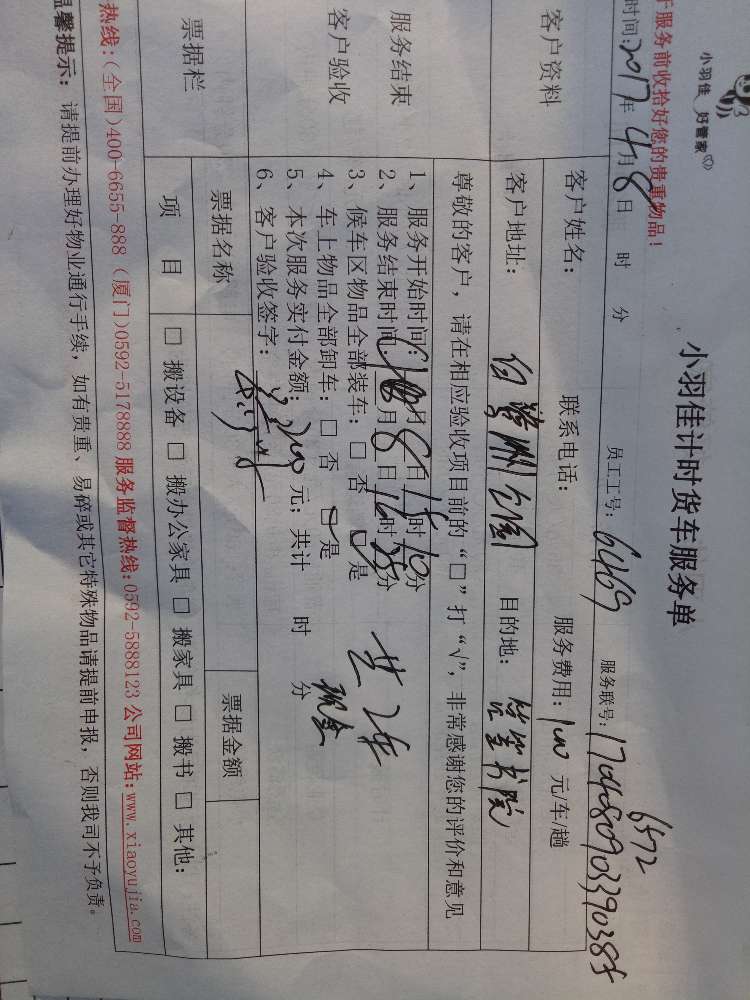 小羽佳 好管家
小羽佳计时货车服务单
于服务前收拾好您的贵重物品！
时间：2017年4月8日 时 分 员工工号：6469 服务联号：
6572
客户资料
客户姓名： 联系电话： 服务费用：100元/车/趟
客户地址：白鹭洲公园 目的地：筼筜书院
尊敬的客户，请在相应验收项目前的“□”打“√”，非常感谢您的评价和意见
服务结束
客户验收
1、服务开始时间：
2、服务结束时间： 月8日 时 分
3、候车区物品全部装车：□否 □是
4、车上物品全部卸车：□否 □是
共2车
5、本次服务实付金额：200元；共计 时 分
现金
6、客户验收签字：
票据栏
票据名称 票据金额
项 目 □ 搬设备 □ 搬办公家具 □ 搬家具 □ 搬书 □ 其他：
热线：(全国)400-6655-888 (厦门)0592-5178888 服务监督热线：0592-5888123 公司网站：www.xiaoyujia.com
温馨提示：请提前办理好物业通行手续，如有贵重、易碎或其它特殊物品请提前申报，否则我司不予负责。